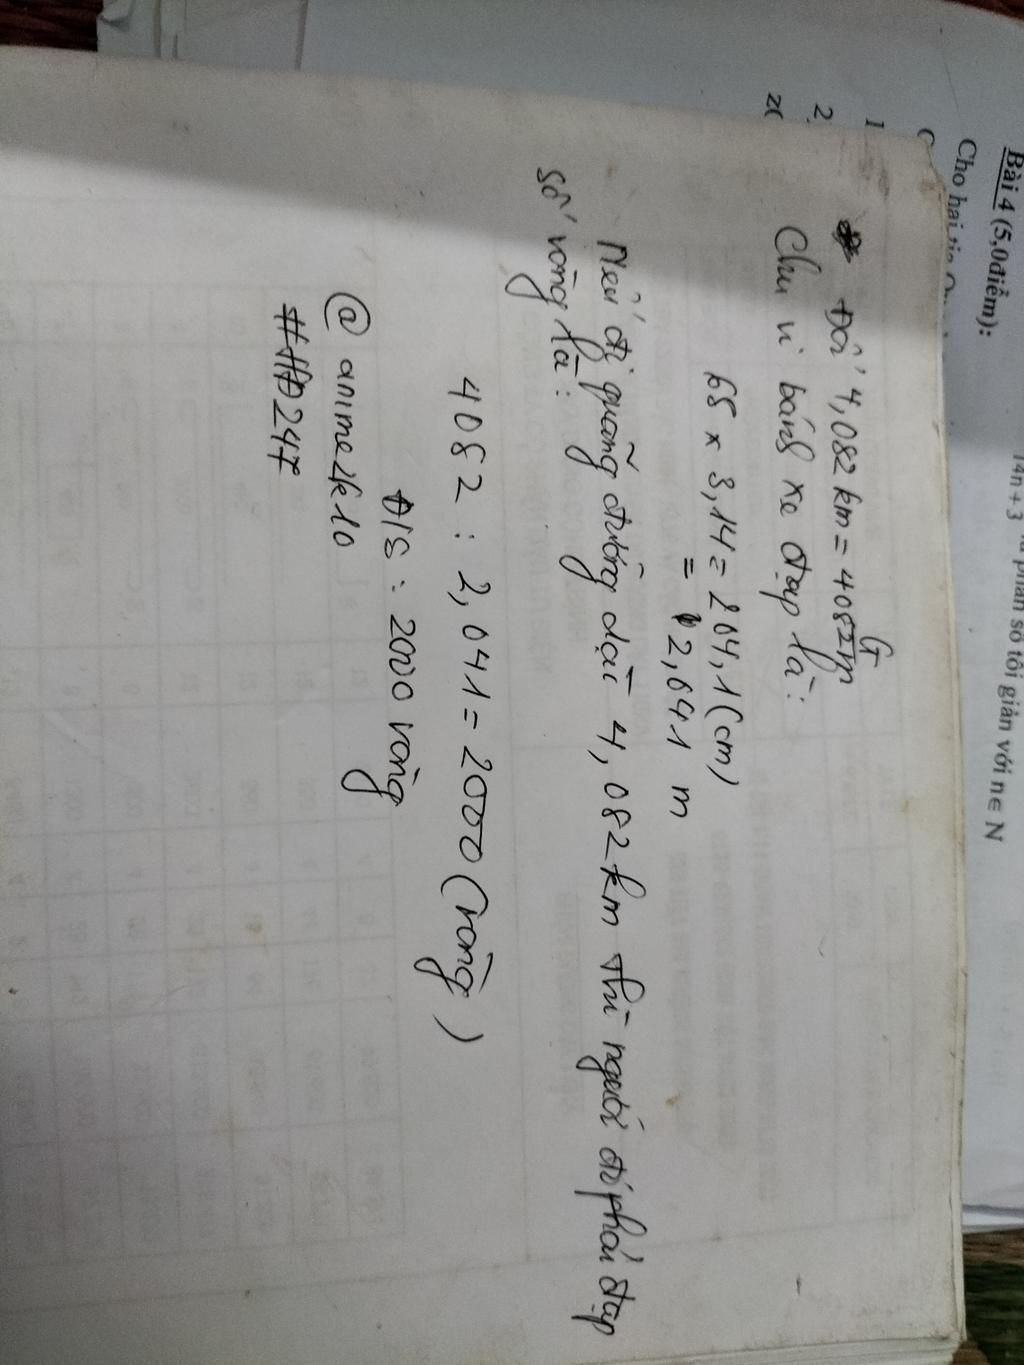 Bài 4 (5,0điểm):
Cho hai
14n + 3 là phân số tối giản với n ∈ N
1
2
G
Đổi 4,082 km = 4082m
Chu vi bánh xe đạp là:
65 x 3,14 = 204,1 (cm)
= 2,041 m
Nếu đi quãng đường dài 4,082 km thì người đó phải đạp
số vòng là:
4082 : 2,041 = 2000 (vòng)
Đ/S: 2000 vòng
@ anime2k10
#HĐ247